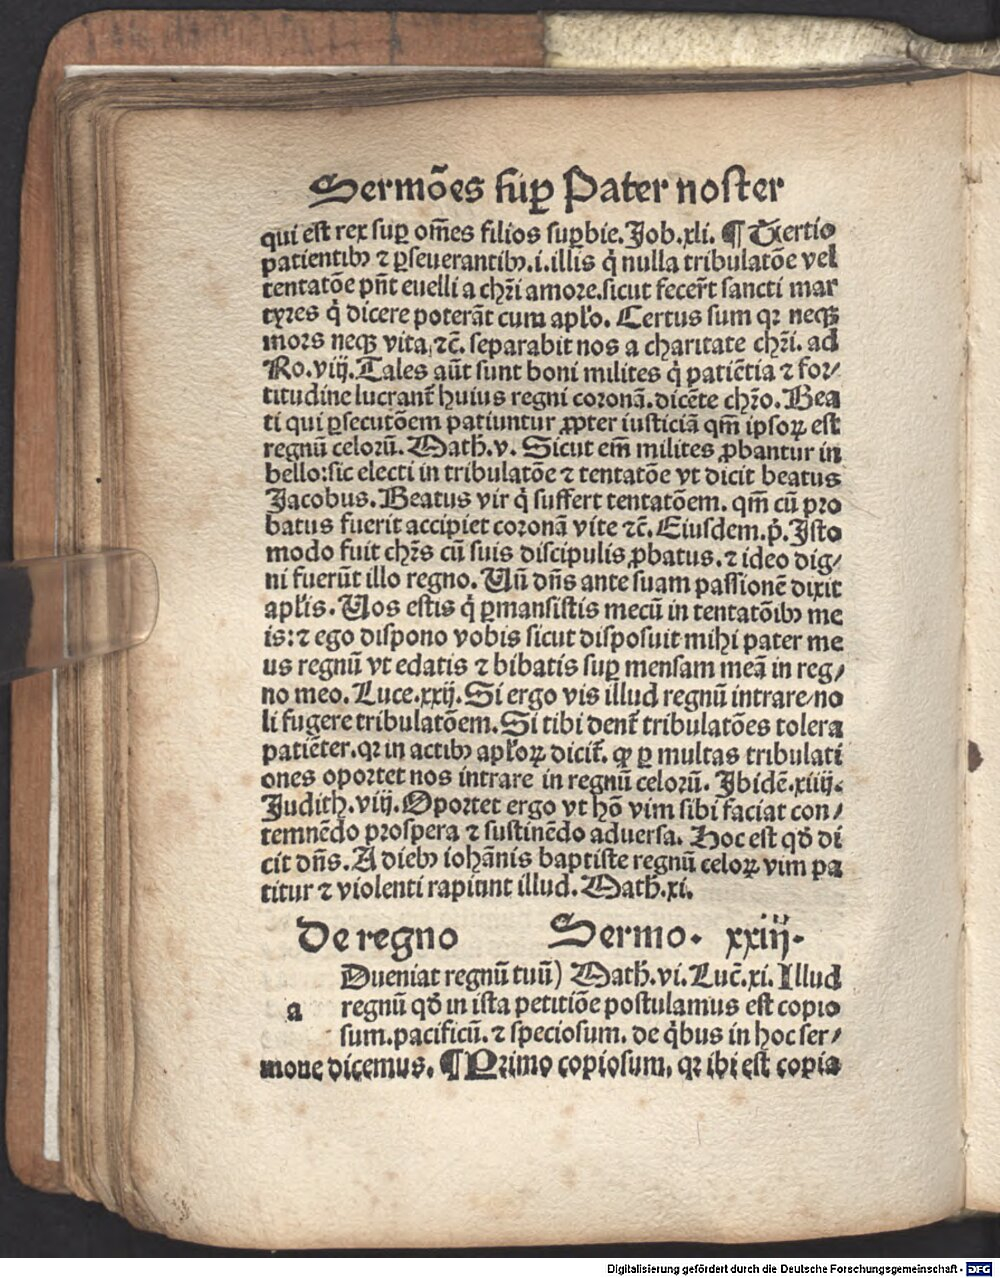 Sermões sup̱ Pater noster
qui est rex sup̱ om̃es filios sup̱bie. Job. xli. ¶ Tertio
patientibꝫ ⁊ ꝑseuerantibꝫ .i. illis q̇ nulla tribulatõe vel
tentatõe pñt euelli a chr̃i amore. sicut fecer̃t sancti mar
tyres q̇ dicere poterãt cum apl̃o. Certus sum qꝛ neqꝫ
mors neqꝫ vita, ⁊c̃. separabit nos a charitate chr̃i. ad
Ro. viij. Tales aũt sunt boni milites q̇ patiẽtia ⁊ for/
titudine lucrant̃ huius regni coronã. dicẽte chr̃o. Bea
ti qui ꝑsecutõem patiuntur ꝓpter iusticiã qm̃ ipsoꝝ est
regnũ celorũ. Math̃. v. Sicut em̃ milites ꝓbantur in
bello: sic electi in tribulatõe ⁊ tentatõe vt dicit beatus
Jacobus. Beatus vir q̇ suffert tentatõem. qm̃ cũ pro
batus fuerit accipiet coronã vite ⁊c̃. Eiusdem. p̃. Isto
modo fuit chr̃s cũ suis discipulis ꝓbatus. ⁊ ideo dig/
ni fuerũt illo regno. Vñ dñs ante suam passionẽ dixit
apl̃is. Uos estis q̇ ꝑmansistis mecũ in tentatõibꝫ me
is: ⁊ ego dispono vobis sicut disposuit mihi pater me
us regnũ vt edatis ⁊ bibatis sup̱ mensam meã in reg/
no meo. Luce. xxij. Si ergo vis illud regnũ intrare/ no
li fugere tribulatõem. Si tibi dent̃ tribulatões tolera
patiẽter. qꝛ in actibꝫ apl̃oꝝ dicit̃. ꝙ ꝑ multas tribulati
ones oportet nos intrare in regnũ celorũ. Ibidẽ. xiiij.
Judith. viij. Oportet ergo vt hõ vim sibi faciat con/
temnẽdo prospera ⁊ sustinẽdo aduersa. Hoc est qð di
cit dñs. A diebꝫ iohãnis baptiste regnũ celoꝝ vim pa
titur ⁊ violenti rapiunt illud. Math̃. xi.
De regno Sermo. xxiij.
Dueniat regnũ tuũ) Math̃. vi. Luc̃. xi. Illud
a regnũ qð in ista petitiõe postulamus est copio
sum. pacificũ. ⁊ speciosum. de q̇bus in hoc ser/
mone dicemus. ¶ Primo copiosum, qꝛ ibi est copia
Digitalisierung gefördert durch die Deutsche Forschungsgemeinschaft - DFG